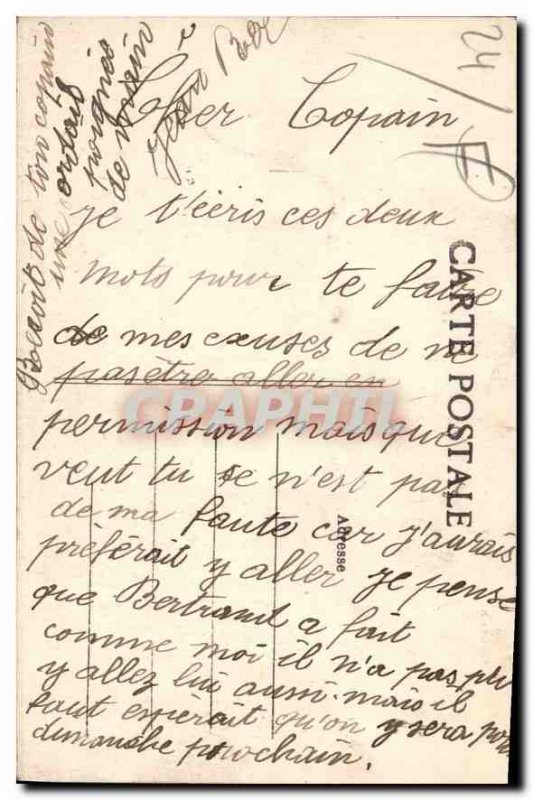 Cher Copain
je t'écris ces deux
mots pour te faire
de mes excuses de ne
pas être aller en
permission mais que
veut tu se n'est pas
de ma faute car j'aurais
préférait y aller je pense
que Bertrand a fait
comme moi il n'a pas pu
y allez lui aussi mais il
faut espérait qu'on y sera pour
dimanche prochain.
Recoit de ton copain
une
poignée
de main
Jean
CARTE POSTALE
Adresse
24
CRAPHIL